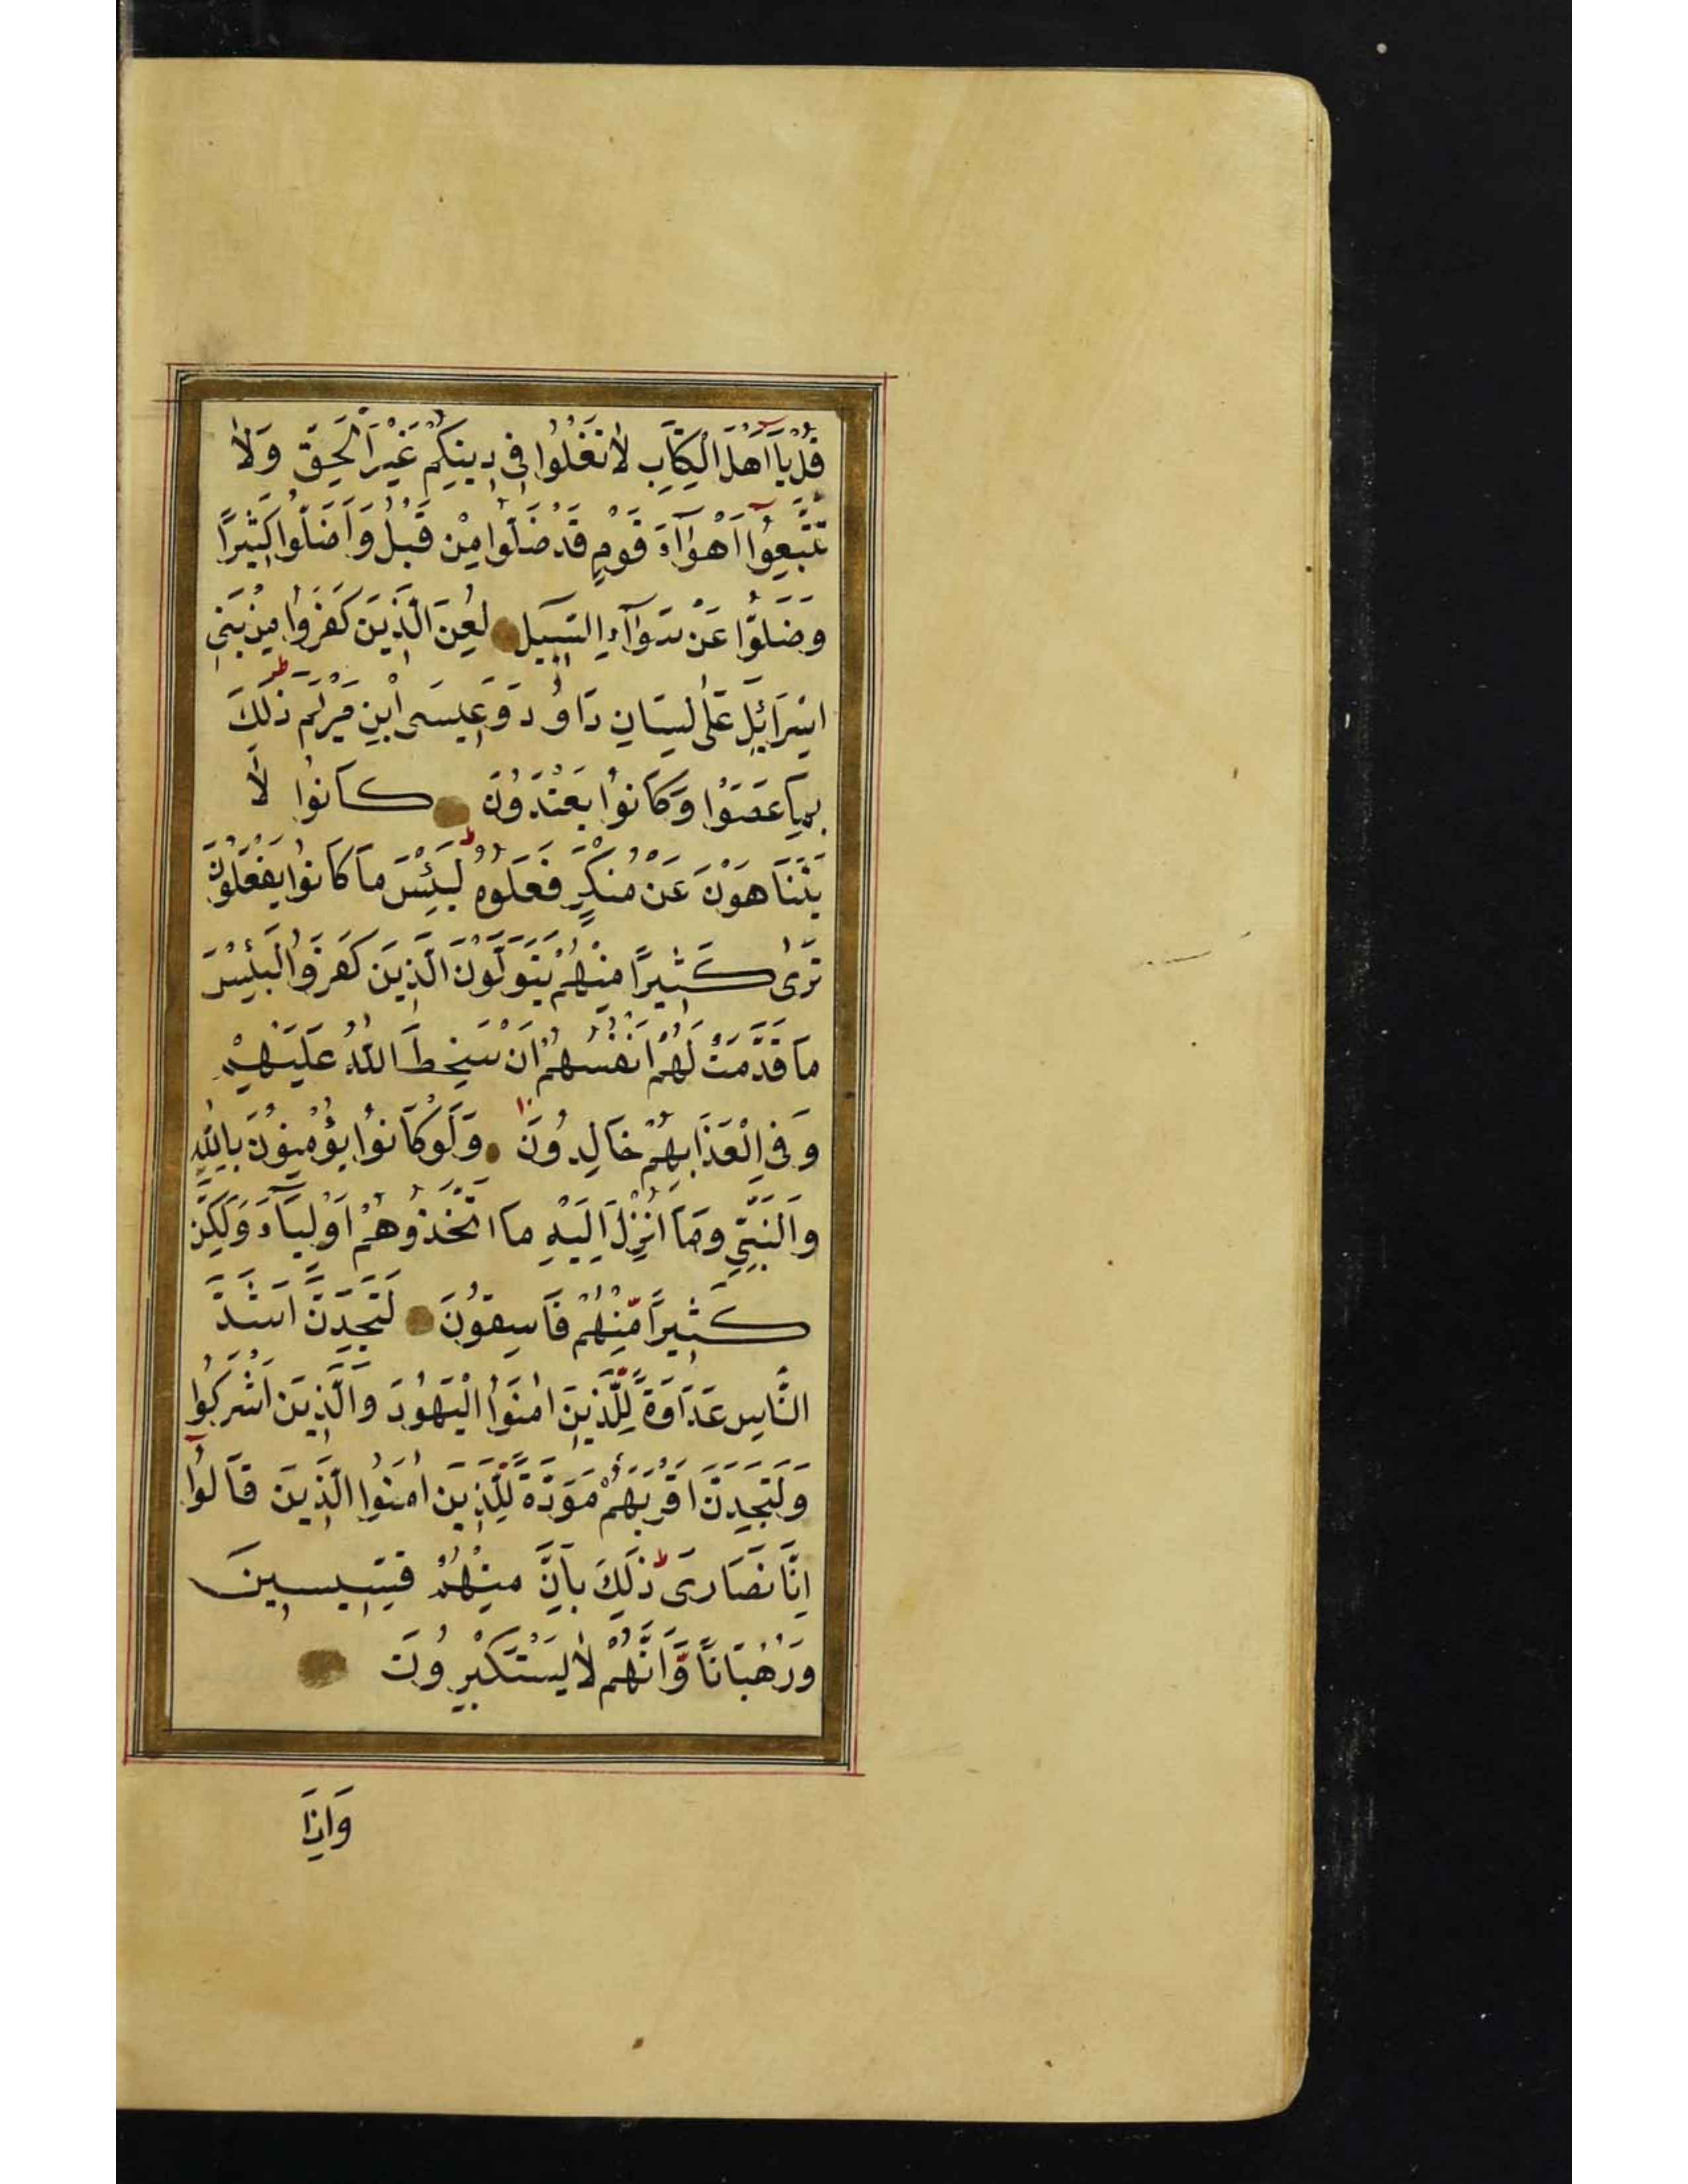 قُلْ يَآ اَهْلَ الْكِتَابِ لَا تَغْلُوا فِي دِينِكُمْ غَيْرَ الْحَقِّ وَلَا
تَتَّبِعُوٓا اَهْوَآءَ قَوْمٍ قَدْ ضَلُّوا مِنْ قَبْلُ وَاَضَلُّوا كَثِيرًا
وَضَلُّوا عَنْ سَوَآءِ السَّبِيلِ لُعِنَ الَّذِينَ كَفَرُوا مِنْ بَنِي
اِسْرَائِلَ عَلٰى لِسَانِ دَاوُدَ وَعِيسَى ابْنِ مَرْيَمَ ط ذٰلِكَ
بِمَا عَصَوْا وَكَانُوا يَعْتَدُونَ كَانُوا لَا
يَتَنَاهَوْنَ عَنْ مُنكَرٍ فَعَلُوهُ ط لَبِئْسَ مَا كَانُوا يَفْعَلُونَ
تَرٰى كَثِيرًا مِنْهُمْ يَتَوَلَّوْنَ الَّذِينَ كَفَرُوا لَبِئْسَ
مَا قَدَّمَتْ لَهُمْ اَنْفُسُهُمْ اَنْ سَخِطَ اللّٰهُ عَلَيْهِمْ
وَفِي الْعَذَابِ هُمْ خَالِدُونَ وَلَوْ كَانُوا يُؤْمِنُونَ بِاللّٰهِ
وَالنَّبِيِّ وَمَا اُنْزِلَ اِلَيْهِ مَا اتَّخَذُوهُمْ اَوْلِيَآءَ وَلَكِنَّ
كَثِيرًا مِّنْهُمْ فَاسِقُونَ لَتَجِدَنَّ اَشَدَّ
النَّاسِ عَدَاوَةً لِّلَّذِينَ اٰمَنُوا الْيَهُودَ وَالَّذِينَ اَشْرَكُوا
وَلَتَجِدَنَّ اَقْرَبَهُمْ مَوَدَّةً لِّلَّذِينَ اٰمَنُوا الَّذِينَ قَالُوٓا
اِنَّا نَصَارَى ط ذٰلِكَ بِاَنَّ مِنْهُمْ قِسِّيسِينَ
وَرُهْبَانًا وَّاَنَّهُمْ لَا يَسْتَكْبِرُونَ
وَاِذَا